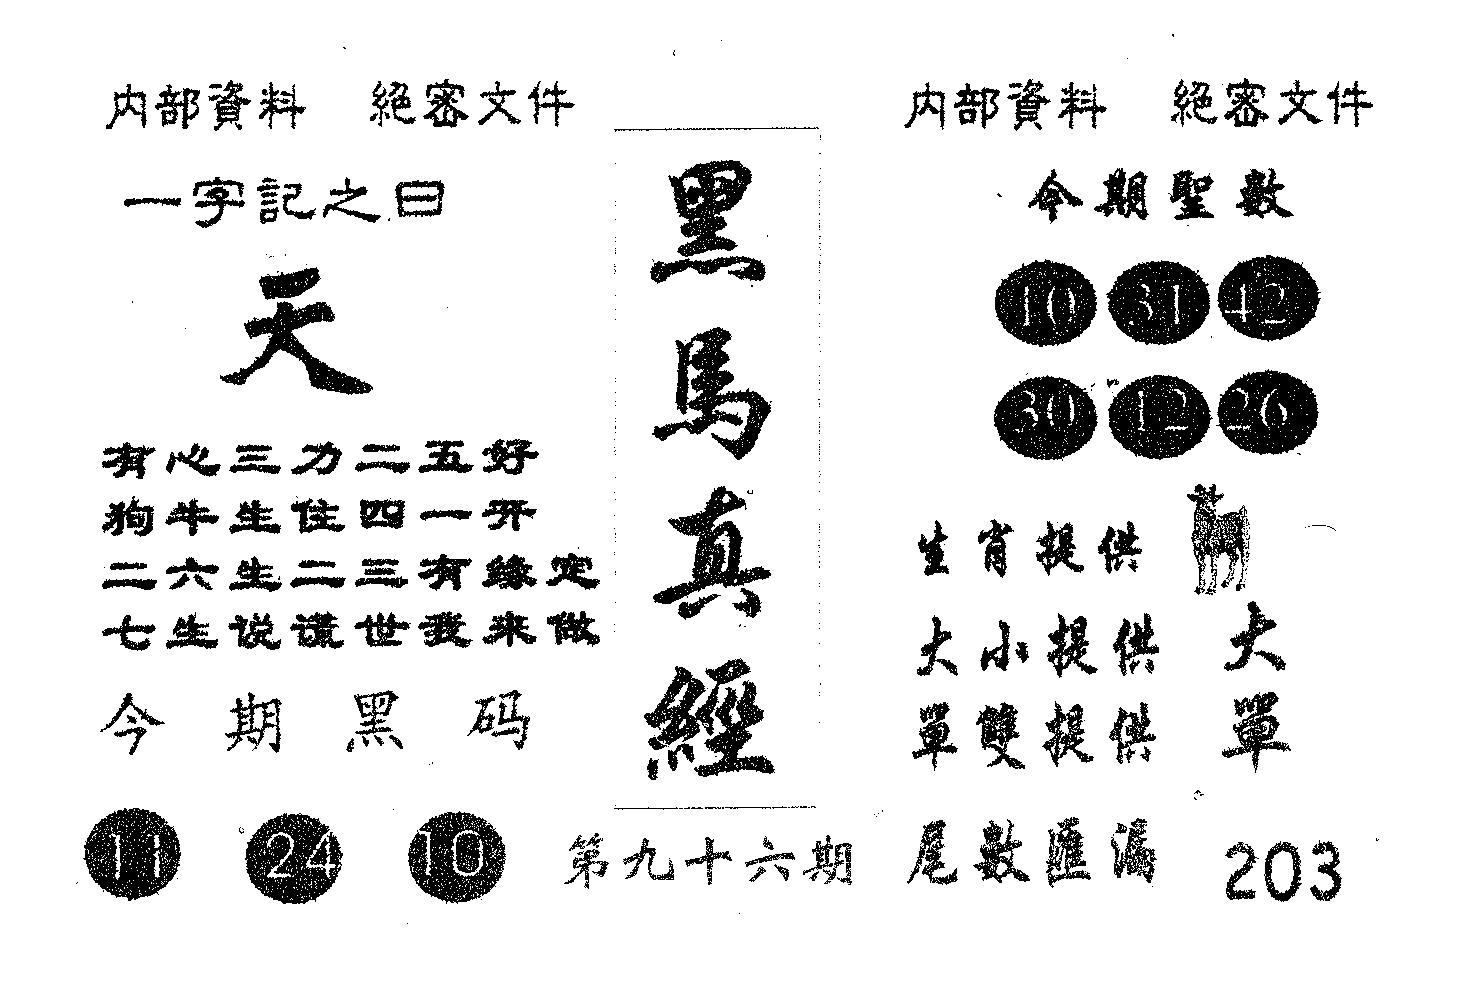 内部資料 絕密文件
一字記之曰
天
有心三力二五好
狗牛生住四一开
二六生二三有緣定
七生说谎世我来做
今期黑码
11 24 10
黑馬真經
第九十六期
内部資料 絕密文件
今期聖數
10 31 42
30 12 26
生肖提供
大小提供 大
單雙提供 單
尾數匯漏 203